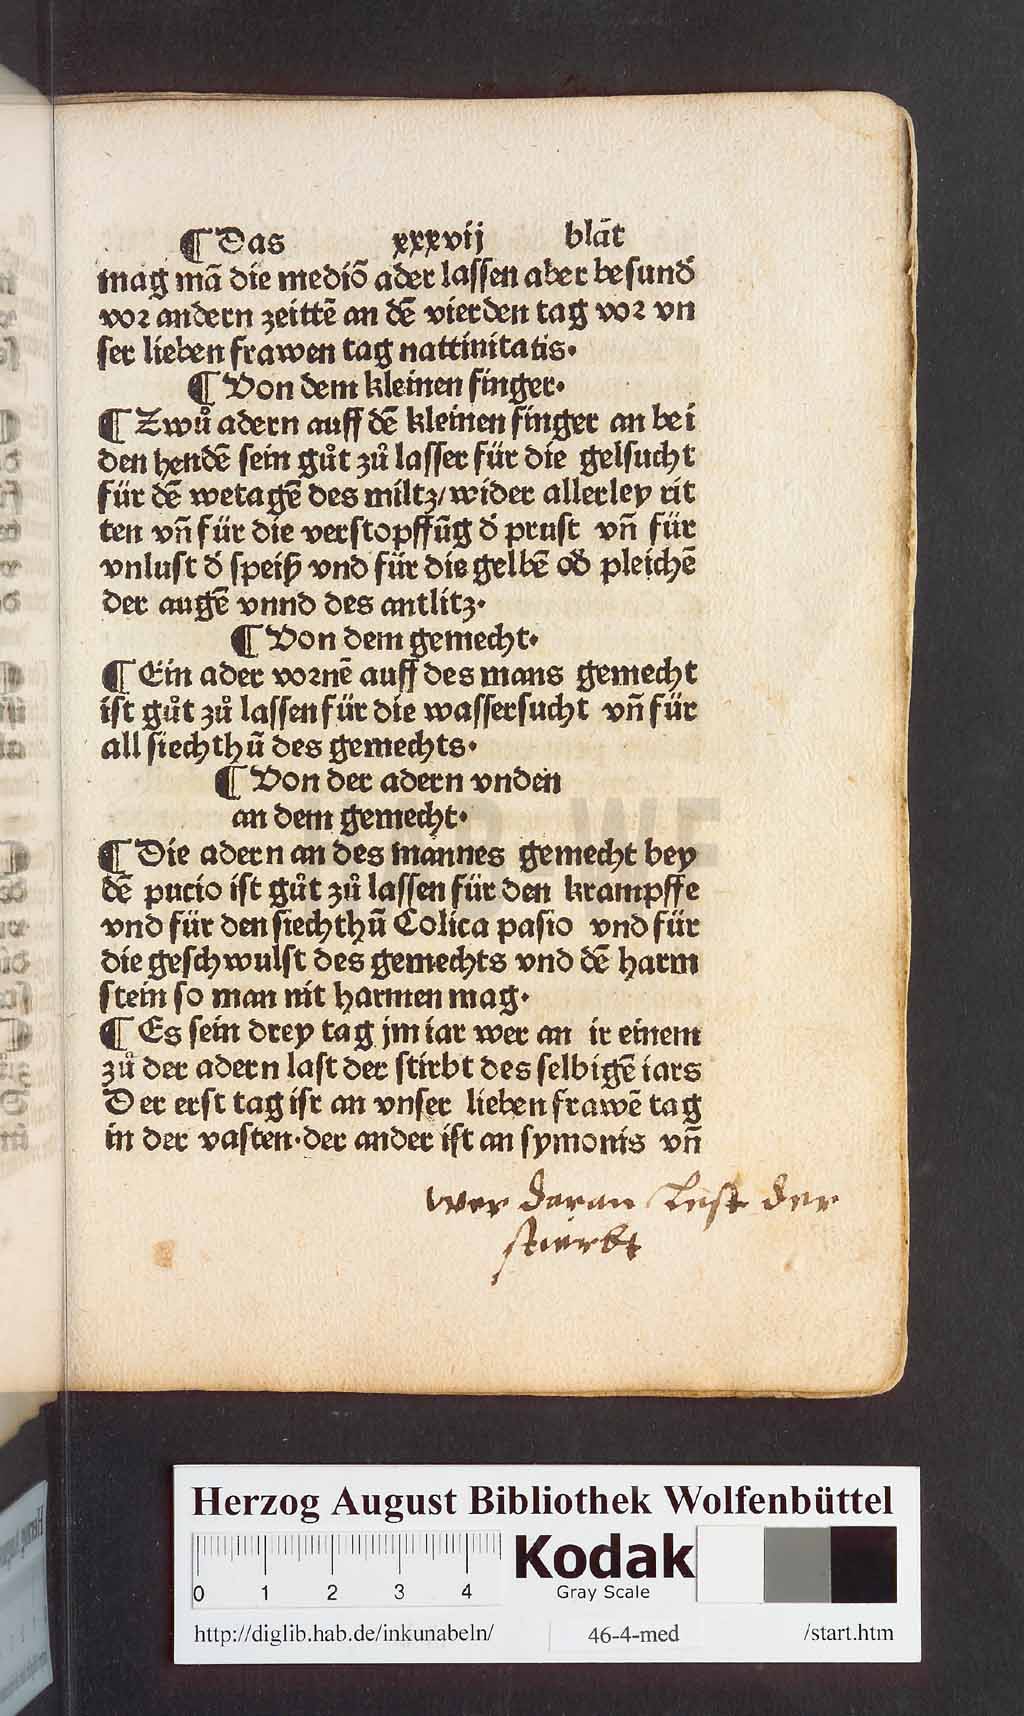 ¶ Das xxxvij blāt
mag mā die mediō ader lassen aber besund̛
vor andern zeittē an dē vierden tag vor vn
ser lieben frawen tag nattinitatis.
¶ Von dem kleinen finger.
¶ Zwů adern auff dē kleinen finger an bei
den hendē sein gůt zů lasser für die gelsucht
für dē wetagē des miltz/wider allerley rit
ten vn̄ für die verstopffūg d̛ prust vn̄ für
vnlust d̛ speiß vnd für die gelbē od̛ pleichē
der augē vnnd des antlitz.
¶ Von dem gemecht.
¶ Ein ader vornē auff des mans gemecht
ist gůt zů lassen für die wassersucht vn̄ für
all siechthū des gemechts.
¶ Von der adern vnden
an dem gemecht.
¶ Die adern an des mannes gemecht bey
dē pucio ist gůt zů lassen für den krampffe
vnd für den siechthū Colica pasio vnd für
die geschwulst des gemechts vnd dē harm
stein so man nit harmen mag.
¶ Es sein drey tag jm iar wer an ir einem
zů der adern last der stirbt des selbigē iars
Der erst tag isr an vnser lieben frawē tag
in der vasten.der ander ist an symonis vn̄
wer daran lest der
stirbt
Herzog August Bibliothek Wolfenbüttel
0 1 2 3 4
Kodak
Gray Scale
http://diglib.hab.de/inkunabeln/ 46-4-med /start.htm